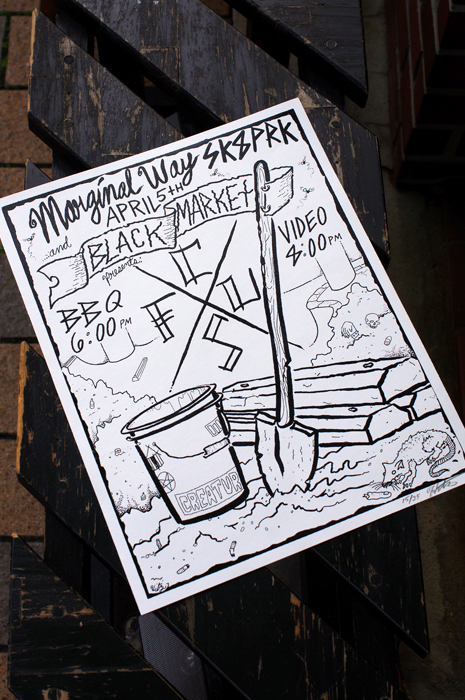 Marginal Way SK8PRK
APRIL 5TH
and BLACK MARKET
presents:
F C U S
VIDEO
8:00 PM
BBQ
6:00 PM
CREATUR
15/25